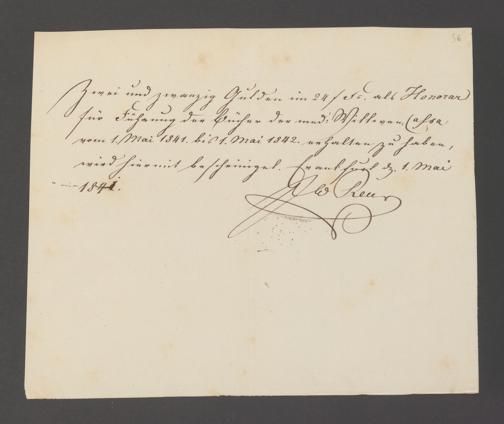 56
Zwei und zwanzig Gulden im 24 f Fs. als Honorar
für Führung der Bücher der med: Wittwen Cassa
vom 1. Mai 1841. bis 1. Mai 1842. erhalten zu haben,
wird hiermit bescheinigt. Frankfurt d. 1. Mai
1841.